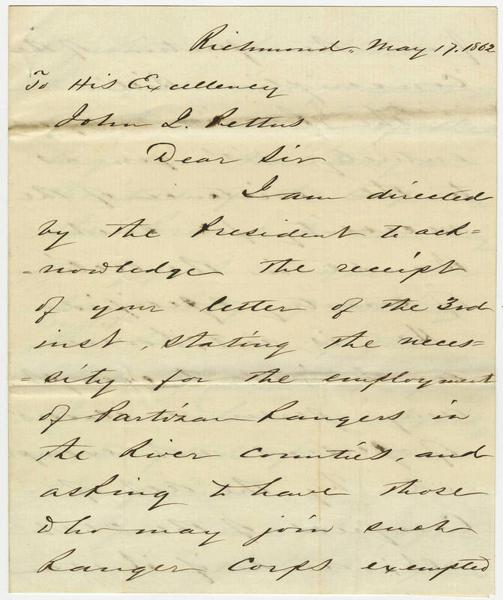 Richmond, May 17. 1862
To His Excellency
John J. Pettus
Dear Sir
I am directed
by the President to ack=
=nowledge the receipt
of your letter of the 3rd
inst, stating the neces=
=sity for the employment
of Partizan Rangers in
the River Counties, and
asking to have those
who may join such
Ranger Corps exempted